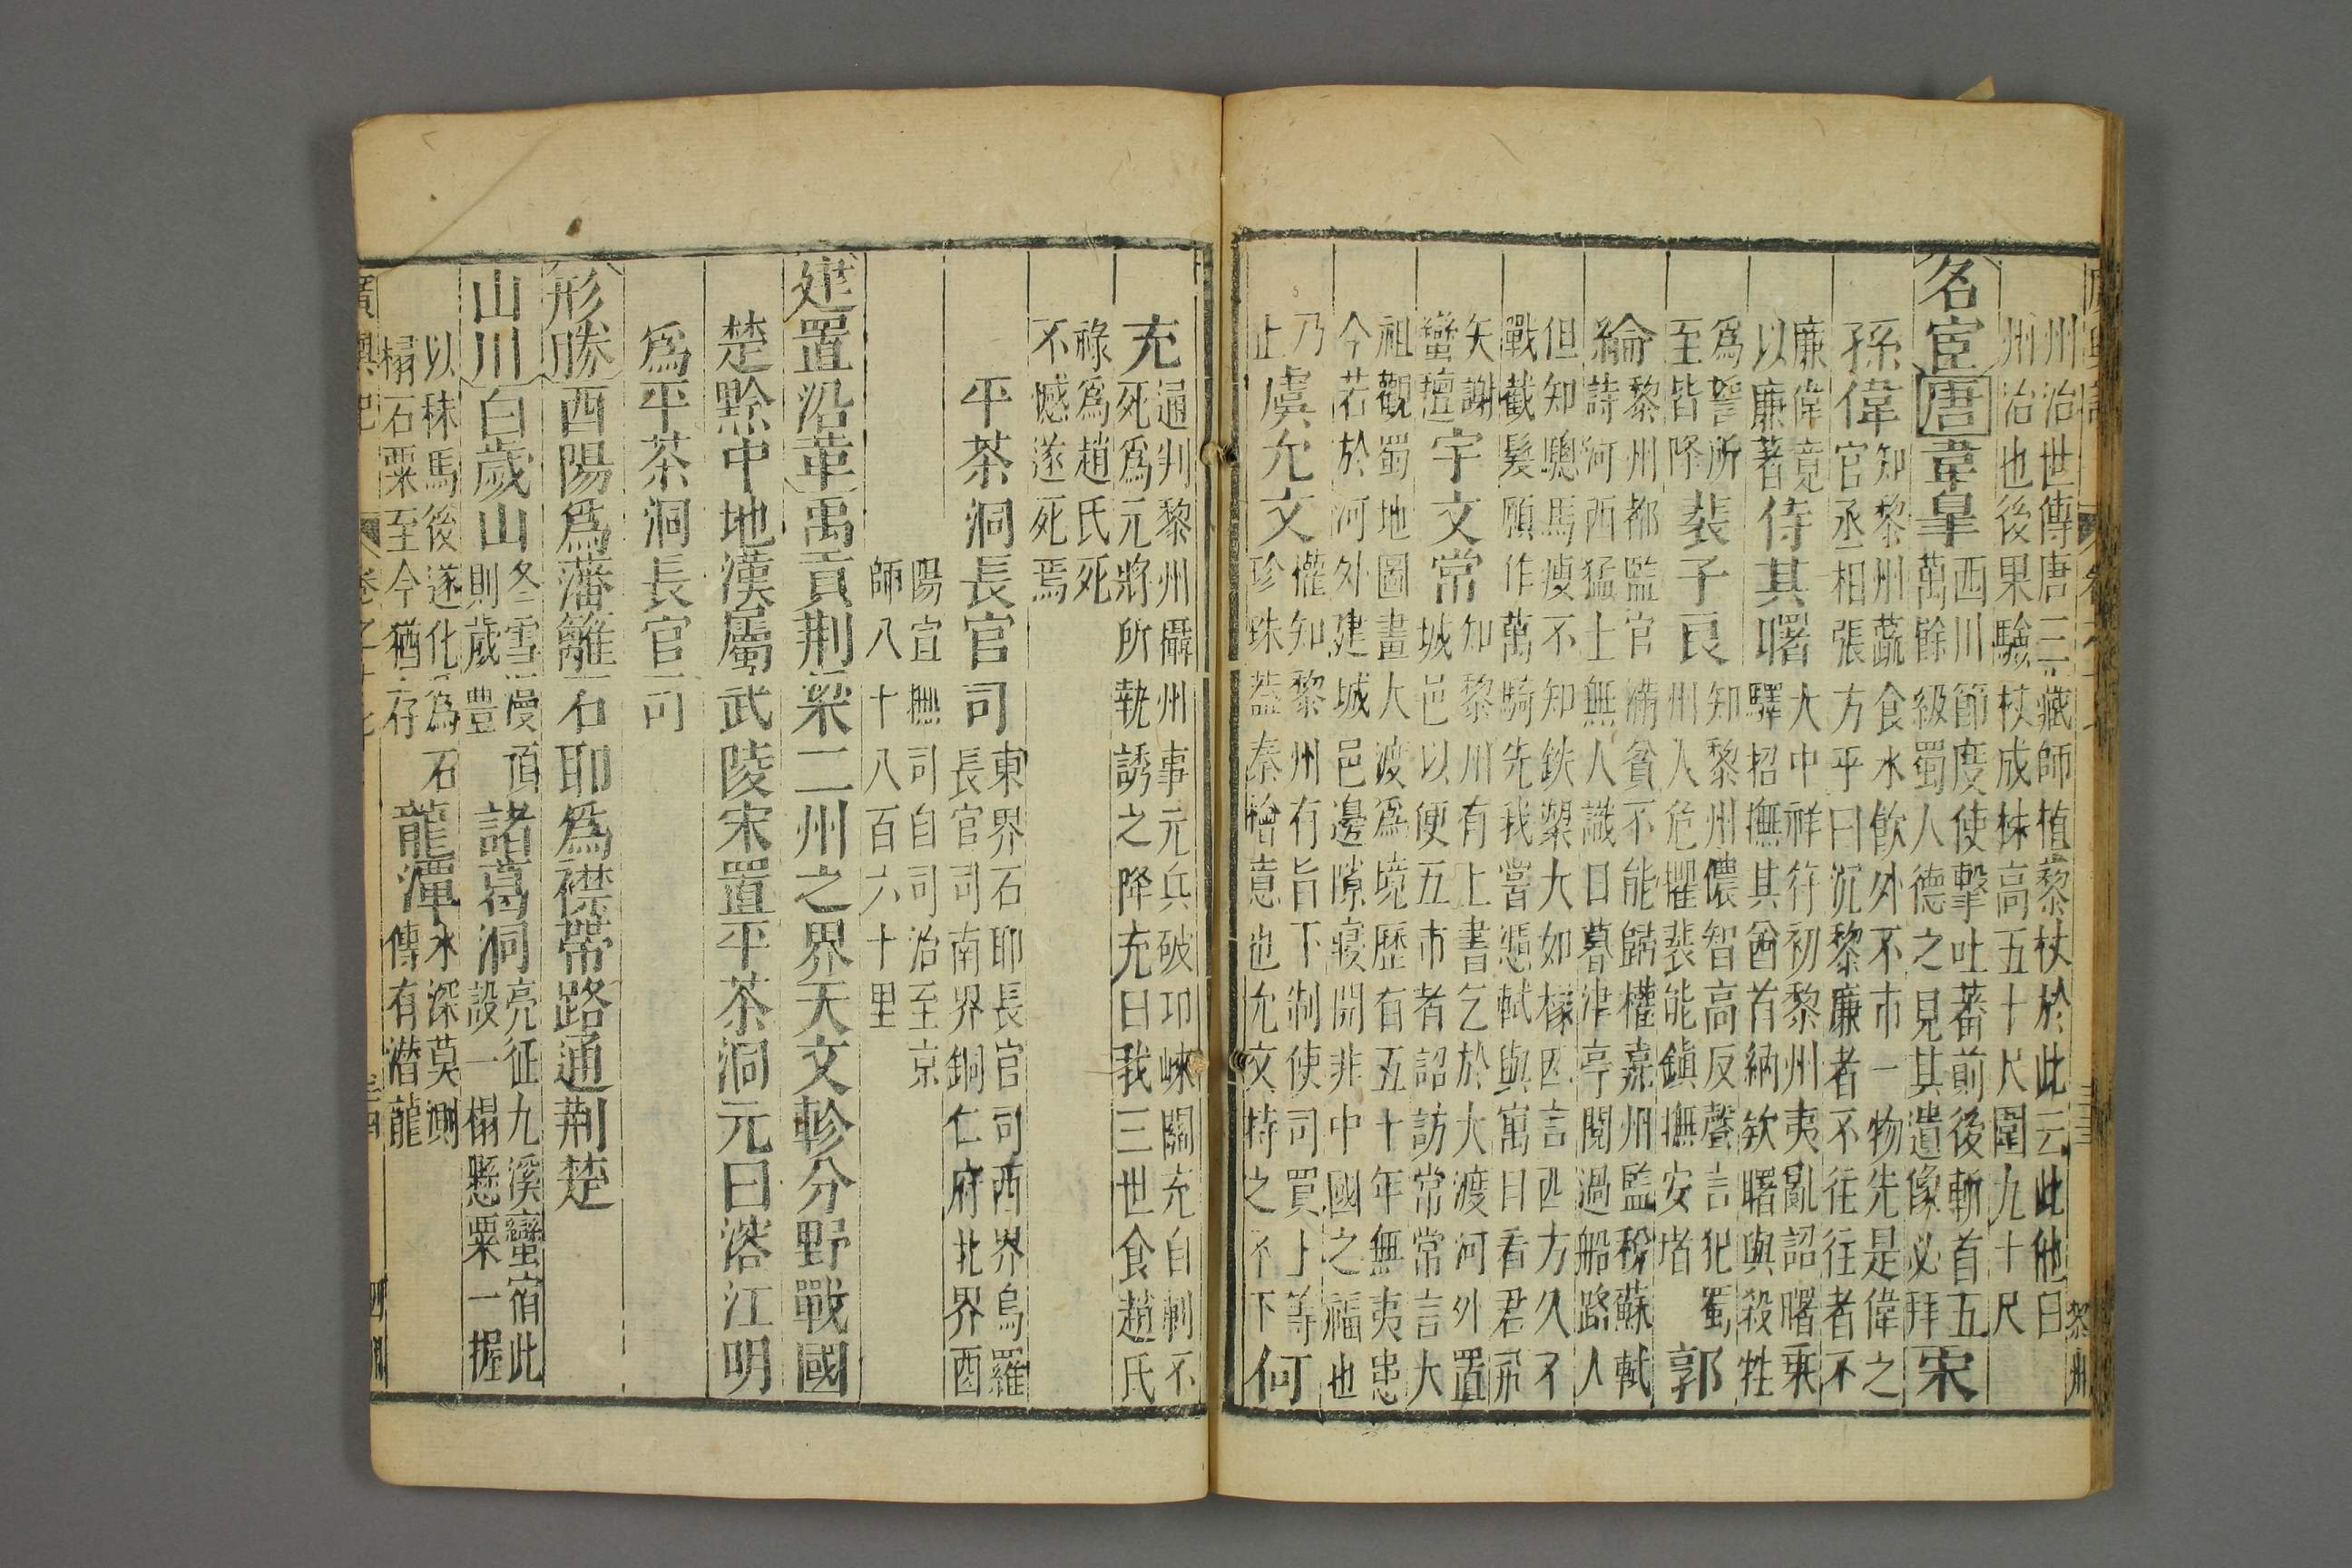 州治世傳唐三藏師植黎杖於此云此他日
州治也後果驗杖成林高五十尺圍九十尺
名宦唐韋皐西川節度使擊吐蕃前後斬首五
萬餘級蜀人德之見其遺像必拜宋
孫偉知黎州蔬食水飲外不市一物先是偉之
官丞相張方平曰沉黎廉者不往往者不
廉偉竟
以廉著侍其曙大中祥符初黎州夷亂詔曙乘
驛招撫其酋首納欵曙與殺牲
爲誓所
至皆降裴子良知黎州儂智高反聲言犯蜀
州人危懼裴能鎭撫安堵郭
綸黎州都監官滿貧不能歸權嘉州監稅蘇軾
詩河西猛士無人識日暮津亭閱過船路人
但知驄馬瘦不知鉄槊大如椽因言西方久不
戰截髮願作萬騎先我嘗悲軾與寓日看君飛
矢謝
蠻壇宇文常知黎州有上書乞於大渡河外置
城邑以便互市者詔訪常常言大
祖觀蜀地圖畫大渡爲境歷有五十年無夷患
今若於河外建城邑邊隙寖開非中國之福也
乃
止虞允文權知黎州有旨下制使司買上等
珍珠蓋秦檜意也允文持之不下何
充通判黎州攝州事元兵破邛崍關充自刺不
死爲元將所執誘之降充曰我三世食趙氏
祿爲趙氏死
不憾遂死焉
平茶洞長官司東界石耶長官司西界烏羅
長官司南界銅仁府北界酉
陽宣撫司自司治至京
師八十八百六十里
建置沿革禹貢荆梁二州之界天文軫分野戰國
楚黔中地漢屬武陵宋置平茶洞元曰溶江明
爲平茶洞長官司
形勝酉陽爲藩籬石耶爲襟帶路通荆楚
山川白歲山冬雪漫頂
則歲豐諸葛洞亮征九溪蠻宿此
設一榻懸粟一握
以秣馬後遂化爲石
榻石粟至今猶存龍潭水深莫測
傳有潛龍